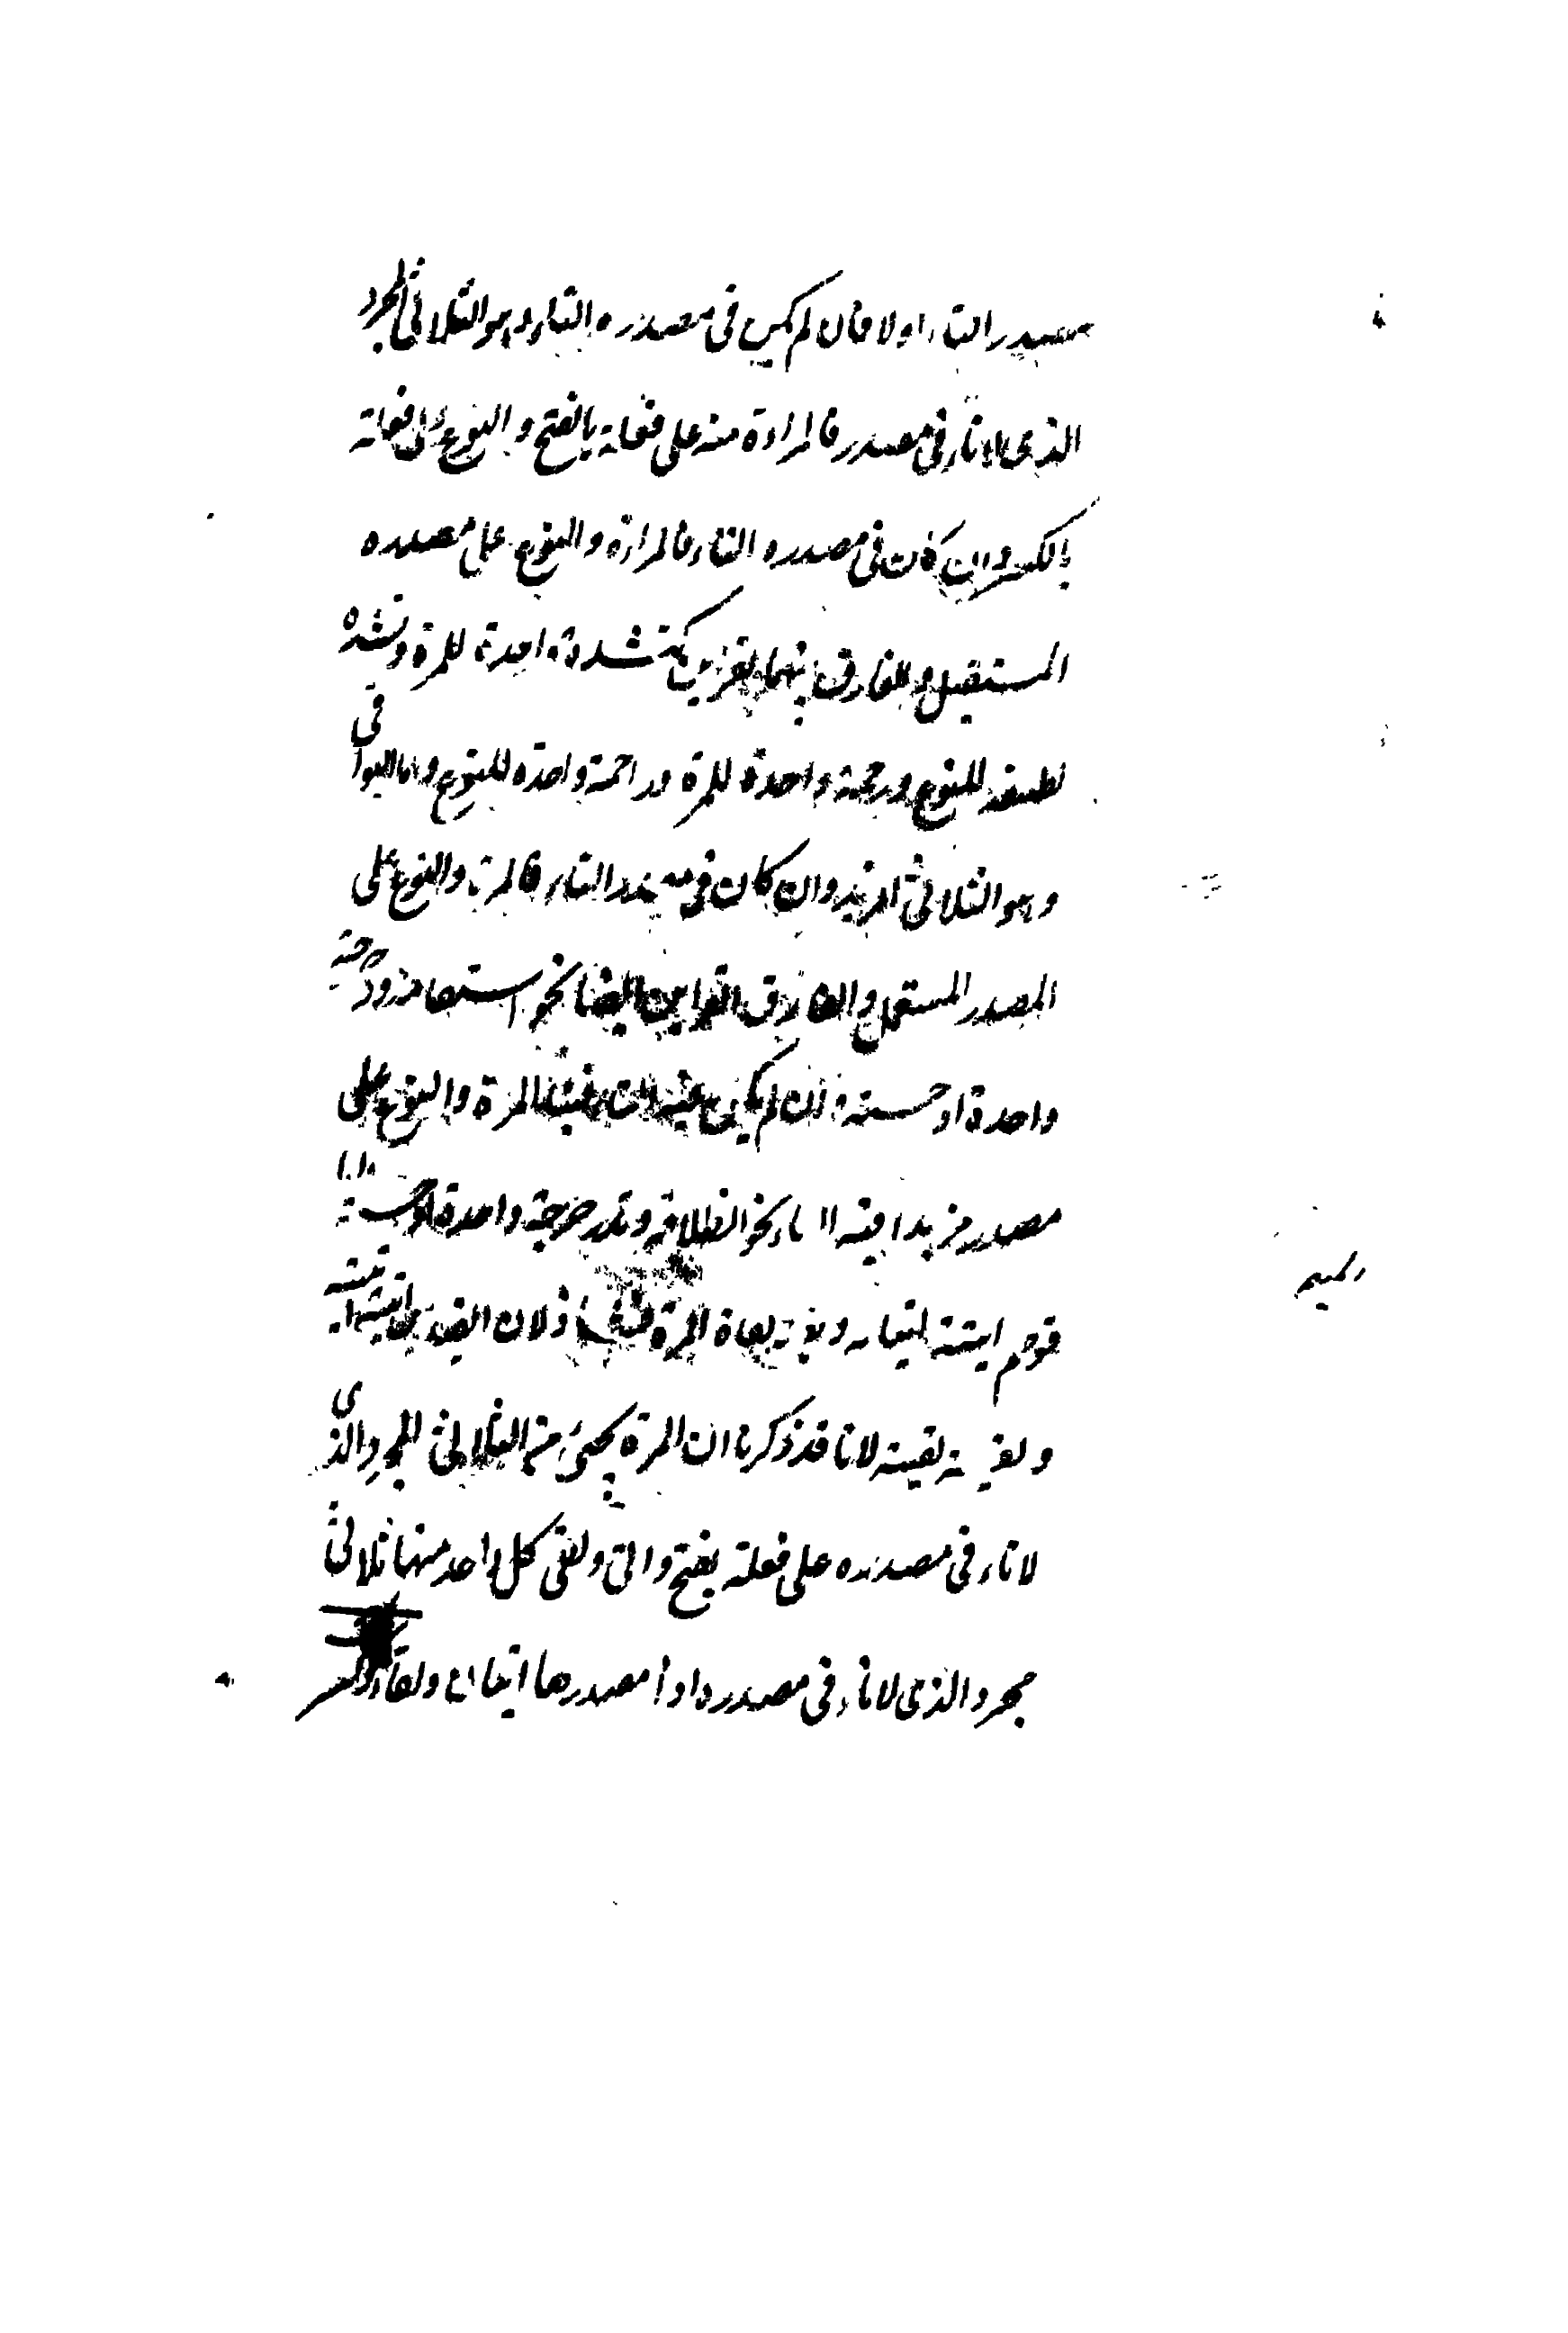 مصدر التاء اولا فان لم يكن فى مصدره التاء وهو الثلاثى المجرد
الذى لا تاء فى مصدر فالمراءة منه على فعلة بالفتح والنوع على فعلة
بالكسر وان كان فى مصدره التاء فالمراة والنوع على مصدره
المستقبل والفارق بينهما القراين كنشدة واحدة للمرة ونشدة
لطيفة للنوع ورحمة واحدة للمرة وراحمة واحدة للنوع واما البواقى
وهو الثلاثى المزيد وان كان فى مصدر التاء فالمرة والنوع على
المصدر المستعمل والفارق القراين ايضا نحو استقامة ودحرجة
واحدة او حسنة وان لم يكن فيه التاء فبناء المرة والنوع على
مصدر مزيدا فيه التاء نحو انطلاقة وتدحرجة واحدة او حسنة
قولهم اتيته اتيانة ولقيته لقاءة المرة شاذ لان القياس اتيته اتية
ولقيته لقية لانا قد ذكرنا ان المرة يجئ من الثلاثى المجرد الذى
لا تاء فى مصدره على فعلة بفتح واتى ولقى كل واحد منهما ثلاثى
مجرد الذى لا تاء فى مصدره اذ مصدرها اتيان ولقاء